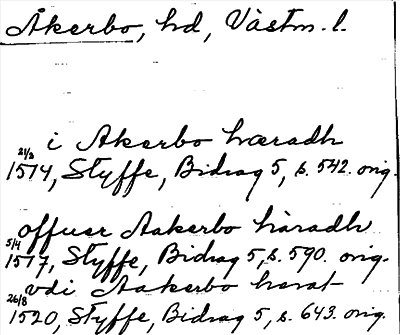 Åkerbo, hd, Västm. l.
i Akerbo hæradh
21/2 1514, Styffe, Bidrag 5, s. 542. orig.
offuer Aakerbo häradh
5/4 1517, Styffe, Bidrag 5, s. 590. orig.
vdi Aakerbo harat
26/8 1520, Styffe, Bidrag 5, s. 643. orig.